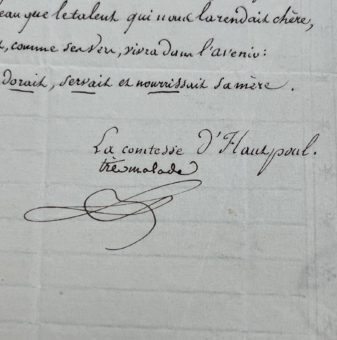 eau que le talent qui nous la rendait chère,
, comme ses vers, vivra dans l'avenir:
dorait, servait et nourrissait sa mère.
La comtesse d'Hautpoul.
très malade